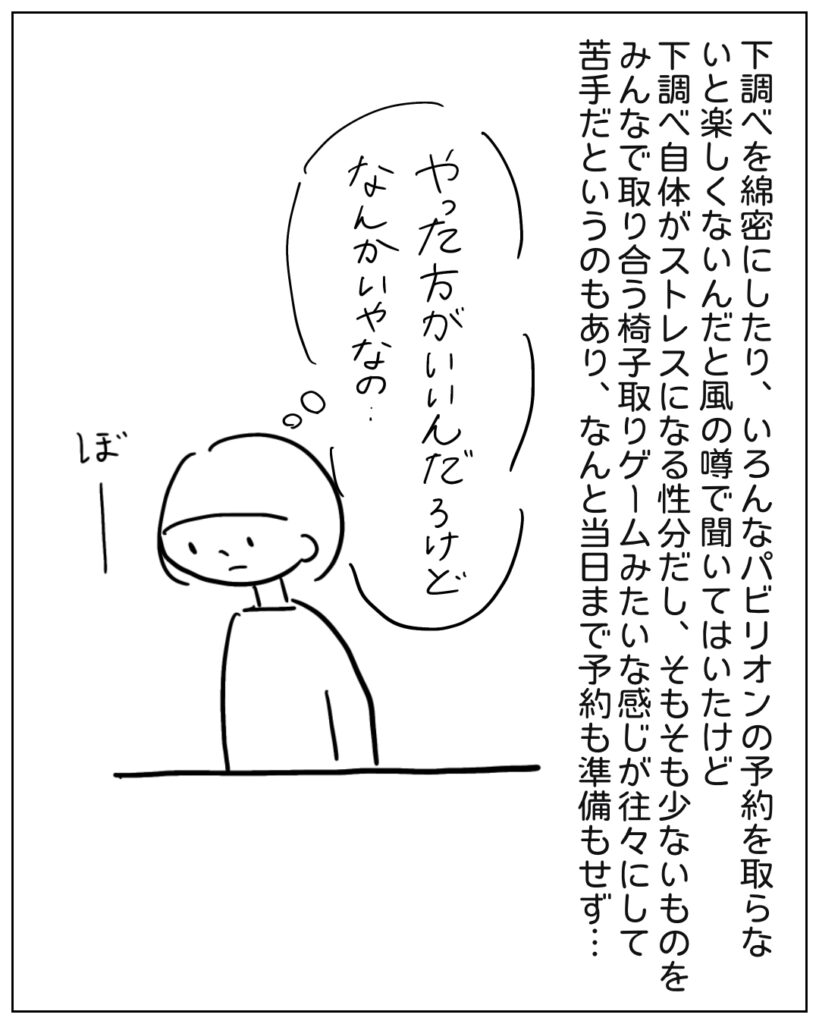 下調べを綿密にしたり、いろんなパビリオンの予約を取らな
いと楽しくないんだと風の噂で聞いてはいたけど
下調べ自体がストレスになる性分だし、そもそも少ないものを
みんなで取り合う椅子取りゲームみたいな感じが往々にして
苦手だというのもあり、なんと当日まで予約も準備もせず…
やった方がいいんだろけど
なんかいやなの…
ぼー